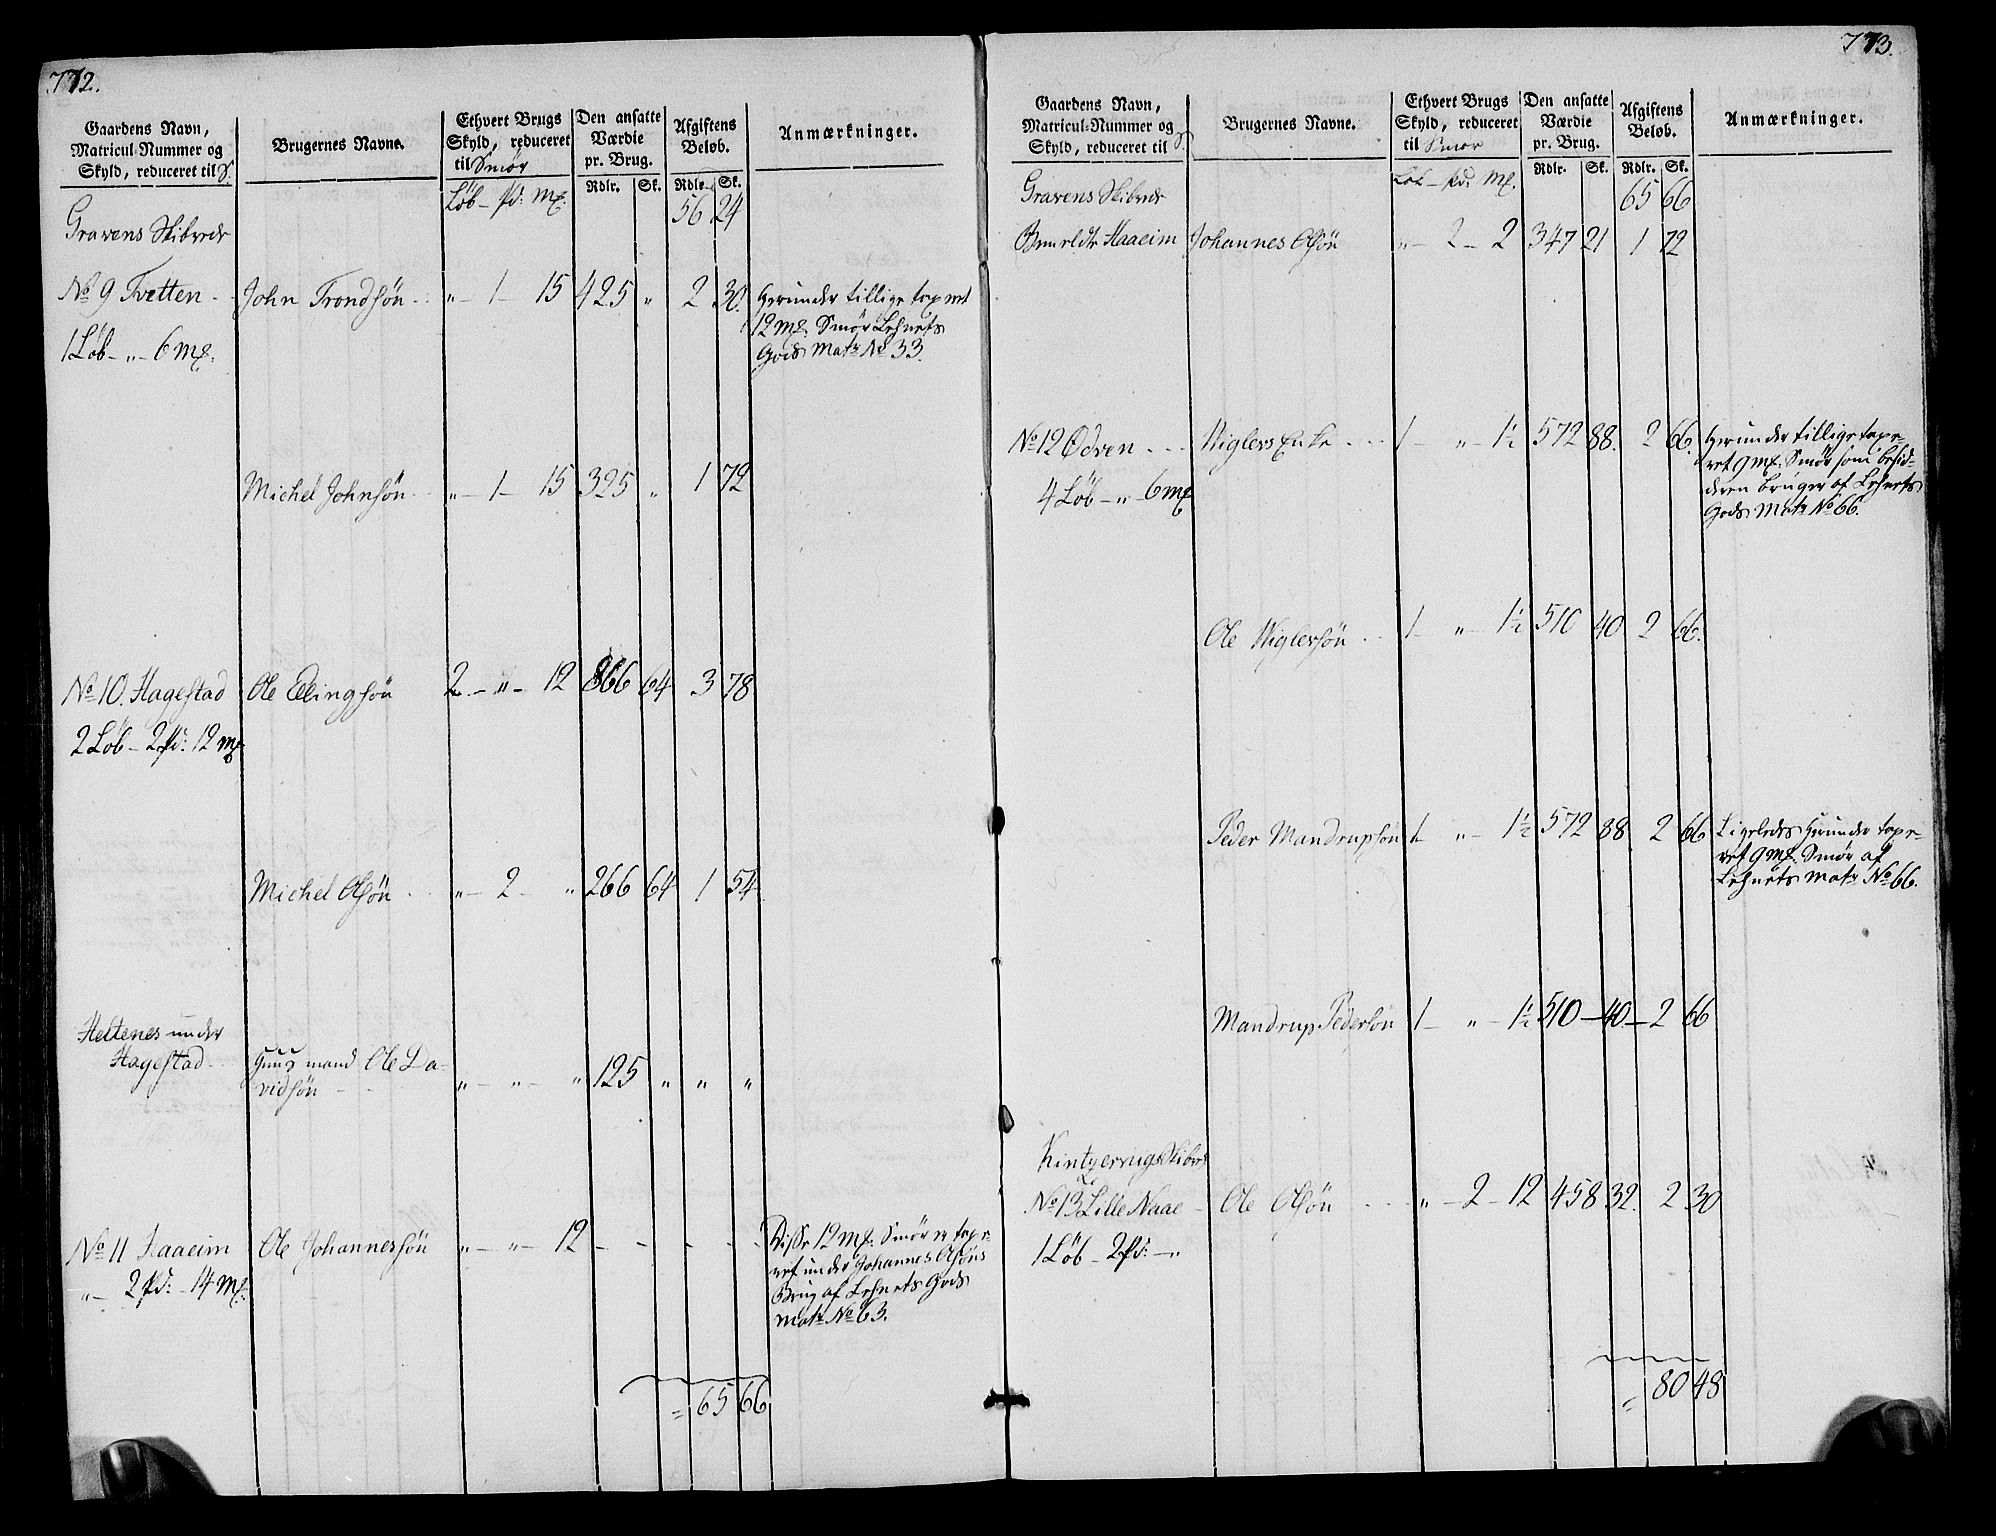 772.
Gaardens Navn, Matricul-Nummer og Skyld, reduceret til S. | Brugernes Navne. | Ethvert Brugs Skyld, reduceret til Smør | Den ansatte Værdie pr. Brug. | Afgiftens Beløb. | Anmærkninger.
Løb – pd: mk: | Rdlr. | Sk. | Rdlr. | Sk.
Gravens Skibrede 56 24
No 9 Tvetten - John Trondsøn „ – 1 – 15 425 „ 2 30. Herunder tillige taxeret
1 Løb – „ – 6 mk. 12 mk. Smør Lehnets
Gods Matr No 33.
Michel Johnsøn „ – 1 – 15 325 „ 1 72
No 10. Hagestad Ole Ellingsøn 2 – „ – 12 866 64 3 78
2 Løb – 2 pd: 12 mk
Michel Olsøn „ – 2 – „ 266 64 1 54
Heltenes under
Hagestad Huusmand Ole Da-
vidsøn „ – „ – „ 125 „ „ „
No 11 Haaeim Ole Johannessøn „ – „ – 12 - - - - - Disse 12 mk. Smør er taxe-
„ – 2 pd: – 14 mk. ret under Johannes Olsøns
Brug af Lehnets Gods
Matr No 63.
= 65 66
773.
Gaardens Navn, Matricul-Nummer og Skyld, reduceret til S | Brugernes Navne. | Ethvert Brugs Skyld, reduceret til Smør | Den ansatte Værdie pr. Brug. | Afgiftens Beløb. | Anmærkninger.
Løb – pd: mk. | Rdlr. | Sk. | Rdlr. | Sk.
Gravens Skibrede 65 66
Haaeim Johannes Olsøn „ – 2 – 2 347 21 1 72
No 12 Ødven - - - Wiglers Enke - - - 1 – „ – 1½ 572 88. 2 66. Herunder tillige taxe-
4 Løb – „ 6 mk ret 9 mk. Smør som besid-
deren bruger af Lehnets
Gods Matr No 66.
Ole Wiglersøn - - 1 – „ – 1½ 510 40 2 66.
Peder Mandrupsøn 1 – „ – 1½ 572 88 2 66 Ligeledes herunder taxe-
ret 9 mk. Smør af
Lehnets Matr No 66.
Mandrup Pedersøn 1 – „ – 1½ 510 – 40 – 2 66
Skibrede
No 13 Lille Naae - Ole Olsøn - - - „ – 2 – 12 458 32. 2 30
1 Løb – 2 pd: – „
= 80 48